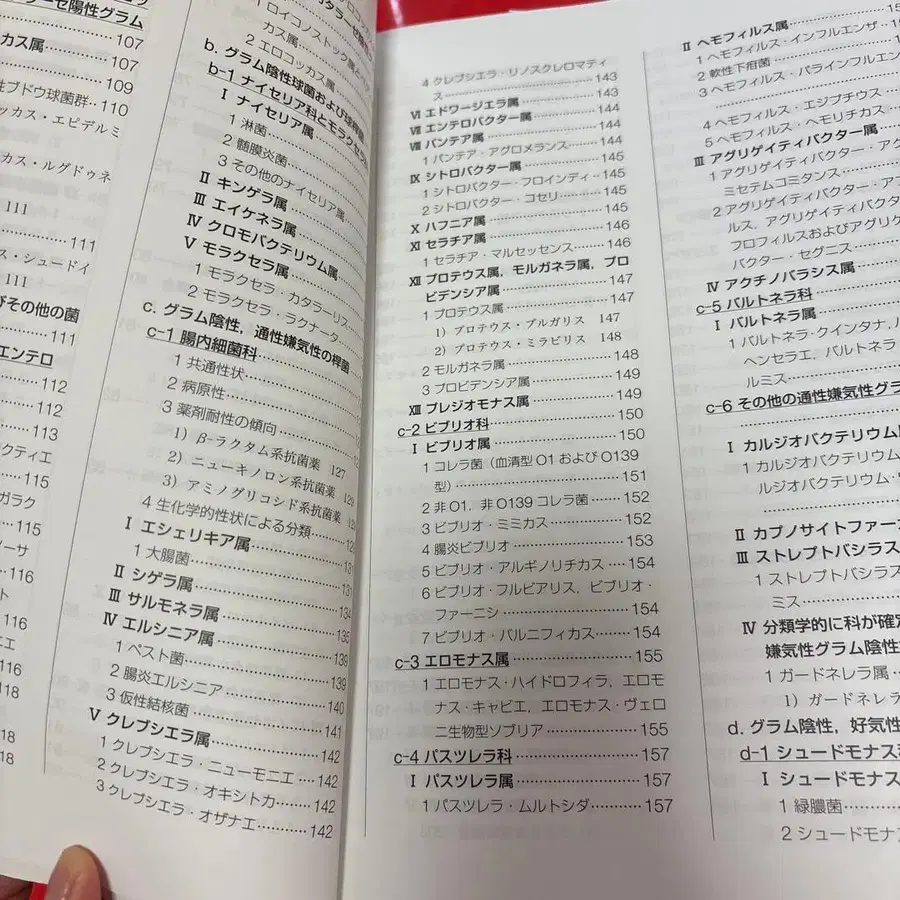 ーゼ陽性グラム
107
カス属
107
109
性ブドウ球菌群‥110
ッカス・エピデルミ
カス・ルグドゥネ
111
111
ス・シュードイ
111
びその他の菌
111
エンテロ
112
112
113
クティエ
ガラク
115
ーサ
116
ト
116
エ
116
118
18
18
1 ロイコノストック属と
カス属
2 エロコッカス属
b. グラム陰性球菌および球桿菌
b-1 ナイセリア科とモラクセラ
Ⅰ ナイセリア属
1 淋菌
2 髄膜炎菌
3 その他のナイセリア属
Ⅱ キンゲラ属
Ⅲ エイケネラ属
Ⅳ クロモバクテリウム属
Ⅴ モラクセラ属
1 モラクセラ・カタラーリス
2 モラクセラ・ラクナータ
c. グラム陰性，通性嫌気性の桿菌
c-1 腸内細菌科
1 共通性状
2 病原性
3 薬剤耐性の傾向
1）β-ラクタム系抗菌薬 127
2）ニューキノロン系抗菌薬 129
3）アミノグリコシド系抗菌薬
4 生化学的性状による分類
Ⅰ エシェリキア属
1 大腸菌 131
Ⅱ シゲラ属 134
Ⅲ サルモネラ属 135
Ⅳ エルシニア属 139
1 ペスト菌 139
2 腸炎エルシニア 140
3 仮性結核菌 141
Ⅴ クレブシエラ属 142
1 クレブシエラ・ニューモニエ 142
2 クレブシエラ・オキシトカ 142
3 クレブシエラ・オザナエ 142
4 クレブシエラ・リノスクレロマティ
ス 143
Ⅵ エドワージエラ属 143
Ⅶ エンテロバクター属 144
Ⅷ パンテア属 144
1 パンテア・アグロメランス 144
Ⅸ シトロバクター属 145
1 シトロバクター・フロインディ 145
2 シトロバクター・コセリ 145
Ⅹ ハフニア属 145
Ⅺ セラチア属 146
1 セラチア・マルセッセンス 146
Ⅻ プロテウス属，モルガネラ属，プロ
ビデンシア属 147
1 プロテウス属 147
1）プロテウス・ブルガリス 147
2）プロテウス・ミラビリス 148
2 モルガネラ属 148
3 プロビデンシア属 149
XIII プレジオモナス属 149
c-2 ビブリオ科 150
Ⅰ ビブリオ属 150
1 コレラ菌（血清型 O1 および O139
型） 151
2 非O1，非O139 コレラ菌 152
3 ビブリオ・ミミカス 152
4 腸炎ビブリオ 153
5 ビブリオ・アルギノリチカス 154
6 ビブリオ・フルビアリス，ビブリオ・
ファーニシ 154
7 ビブリオ・バルニフィカス 154
c-3 エロモナス属 155
1 エロモナス・ハイドロフィラ，エロモ
ナス・キャビエ，エロモナス・ヴェロ
ニ生物型ソブリア 155
c-4 パスツレラ科 157
Ⅰ パスツレラ属 157
1 パスツレラ・ムルトシダ 157
Ⅱ ヘモフィルス属
1 ヘモフィルス・インフルエンザ
2 軟性下疳菌
3 ヘモフィルス・パラインフルエン
4 ヘモフィルス・エジプチウス
5 ヘモフィルス・ヘモリチカス
Ⅲ アグリゲイティバクター属
1 アグリゲイティバクター・アク
ミセテムコミタンス
2 アグリゲイティバクター・アフ
ルス，アグリゲイティバクタ
プロフィルスおよびアグリゲ
バクター・セグニス
Ⅳ アクチノバラシス属
c-5 バルトネラ科
Ⅰ バルトネラ属
1 バルトネラ・クインタナ，
ヘンセラエ，バルトネラ
ルミス
c-6 その他の通性嫌気性グラ
Ⅰ カルジオバクテリウム
1 カルジオバクテリウム
ルジオバクテリウム・
Ⅱ カプノサイトファー
Ⅲ ストレプトバシラス
1 ストレプトバシラス
ミス
Ⅳ 分類学的に科が確定
嫌気性グラム陰性
1 ガードネレラ属
1）ガードネレラ
d. グラム陰性，好気性
d-1 シュードモナス
Ⅰ シュードモナス
1 緑膿菌
2 シュードモナ